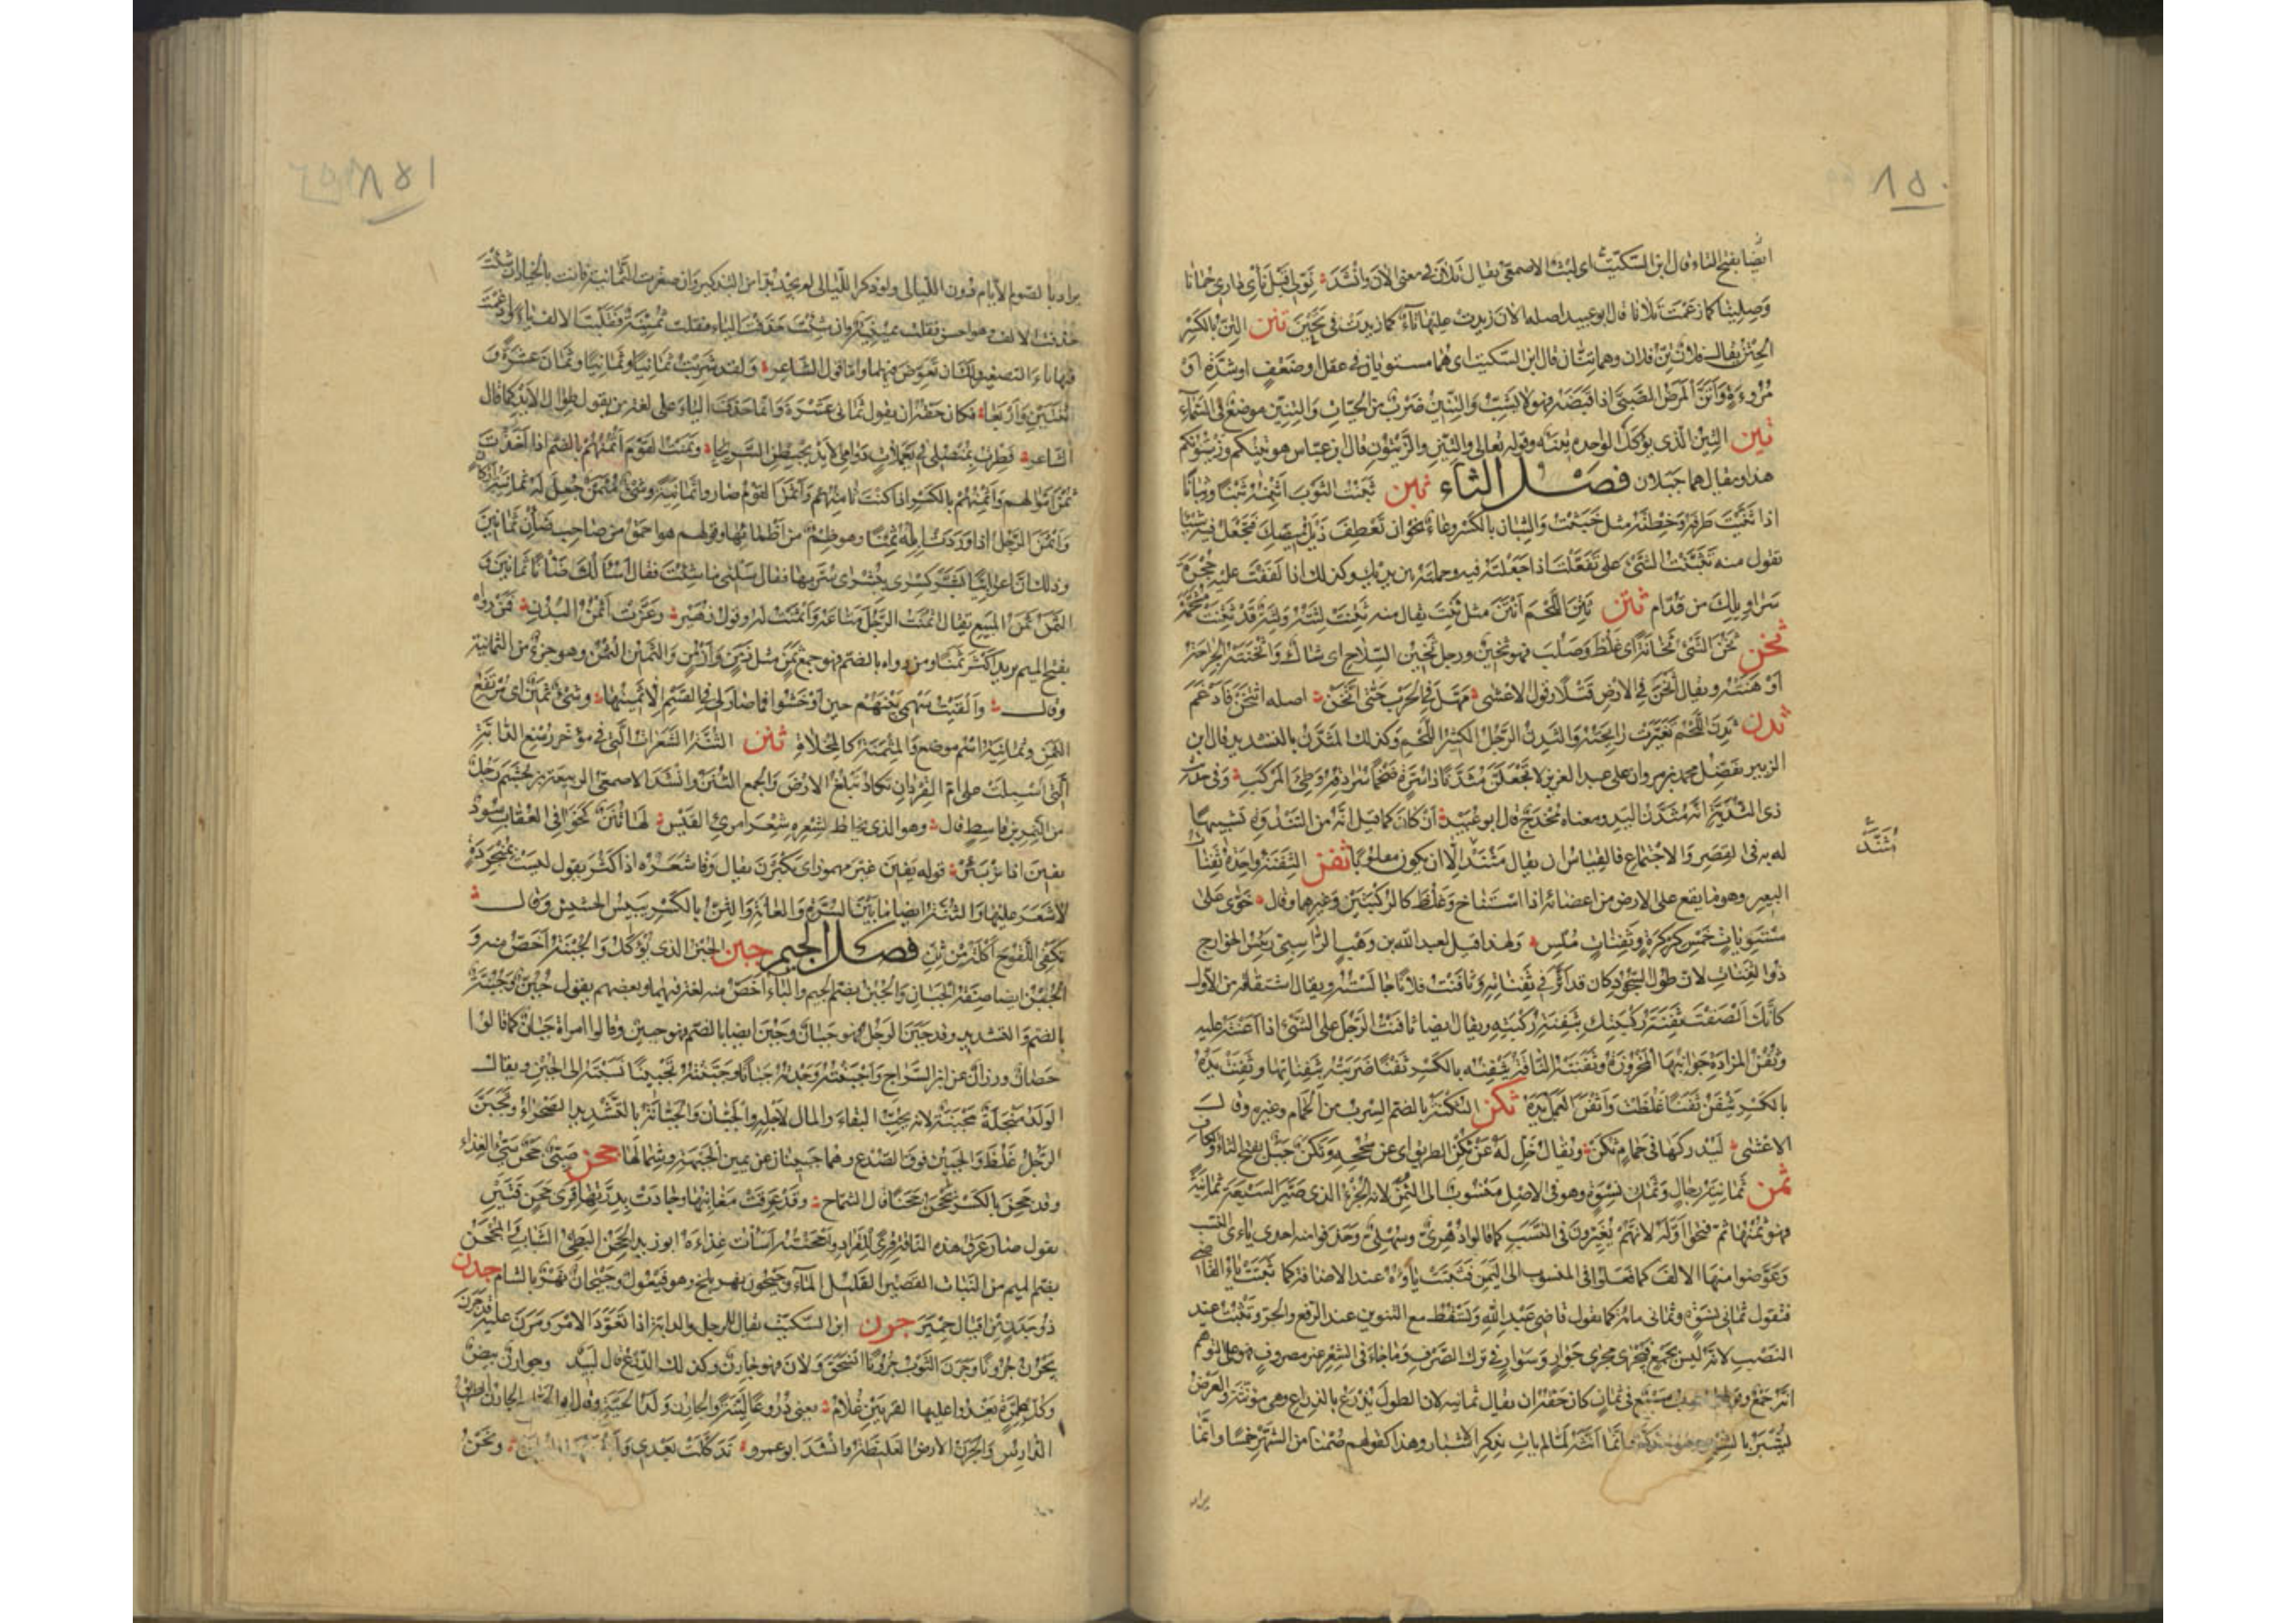 ٨٥٠
ايضا بفتح التاء قال ابن السكيت اى لبث الاصمعى يقال تلان فى معنى الان وانشد نولى قبل ناى دارى جمانا
وصلينا كما زعمت تلانا قال ابو عبيد اصله الان زيدت عليها تاء كما زيدت فى تحين تنن التن بالكسر
الحتن يقال فلان تن فلان وهما تنان قال ابن السكيت اى هما مستويان فى عقل او ضعف او شدة او
مروءة واتن المرض الصبى اذا قبضه فهو لا يشب والتنين ضرب من الحيات والتنين موضع فى السماء
تين التين الذى يؤكل الواحدة تينة وقوله تعالى والتين والزيتون قال ابن عباس هو تينكم وزيتونكم
هذا ويقال هما جبلان فصل الثاء ثبن ثبنت الثوب اثبنه ثبنا وثبانا
اذا ثنيت طرفه وخطته مثل خبنت والثبان بالكسر وعاء نحو ان تعطف ذيل قميصك فتجعل فيه شيئا
تقول منه تثبنت الشئ على تفعلت اذا جعلته فيه وحملته بين يديك وكذلك اذا لففت عليه حجزة
سراويلك من قدام ثتن ثتن اللحم انتن مثل ثنت يقال منه ثتنت لثته ولثة قد ثتنت
ثخن ثخن الشئ ثخانة اى غلظ وصلب فهو ثخين ورجل ثخين السلاح اى شاك واثخنته الجراحة
اوهنته ويقال اثخن فى الارض قتلا وقول الاعشى تمهل فى الحرب حتى اثخن اصله اثتخن فادغم
ثدن ثدن اللحم تغيرت رائحته والثدن الرجل الكثير اللحم وكذلك المثدن بالتشديد قال ابن
الزبير يفضل محمد بن مروان على عبد العزيز لا تجعلن مثدنا ذا سرة ضخما سرادقه وطئ المركب وفى حديث
ذى الثدية انه مثدن اليد ومعناه مخدج قال ابو عبيد ان كان كما قيل انه من الثندوة تشبيها
له به فى القصر والاجتماع فالقياس ان يقال مثند الا ان يكون مقلوبا ثفن الثفنة واحدة ثفنات
مثند
البعير وهو ما يقع على الارض من اعضائه اذا استناخ وغلظ كالركبتين وغيرهما وقال خوى على
مستويات خمس كركرة وثفنات ملس ولهذا قيل لعبد الله بن وهب الراسبى رئيس الخوارج
ذو الثفنات لان طول السجود كان قد اثر فى ثفناته وثافنت فلانا جالسته ويقال اشتقاقه من الاول
كانك الصقت ثفنة ركبتك بثفنة ركبته ويقال ايضا ثافنت الرجل على الشئ اذا اعنته عليه
وثفن المزادة جوانبها المخروزة وثفنته الناقة تثفنه بالكسر ثفنا ضربته بثفناتها وثفنت يده
بالكسر تثفن ثفنا غلظت واثفن العمل يده ثكن الثكنة بالضم السرب من الحمام وغيره وقال
الاعشى ليدركها فى حمام ثكن ويقال خل له عن ثكن الطريق اى عن سجحه وثكن جبل بفتح الثاء والكاف
ثمن ثمانية رجال وثمان نسوة وهو فى الاصل منسوب الى الثمن لانه الجزء الذى صير السبعة ثمانية
فهو ثمنها ثم فتحوا اوله لانهم يغيرون فى النسب كما قالوا دهرى وسهلى وحذفوا منه احدى ياءى النسب
وعوضوا منها الالف كما فعلوا فى المنسوب الى اليمن فثبتت ياؤه عند الاضافة كما ثبتت ياء القاضى
فتقول ثمانى نسوة وثمانى مائة كما تقول قاضى عبد الله وتسقط مع التنوين عند الرفع والجر وتثبت عند
النصب لانه ليس بجمع فيجرى مجرى جوار وسوار فى ترك الصرف وما جاء فى الشعر غير مصروف فهو على توهم
انه جمع سبع فى ثمان كان حقه ان يقال ثمانية لان الطول يذرع بالذراع وهى مؤنثة والعرض
يشبر بالشبر وهو مذكر وانما انثه لما لم يات بذكر الاشبار وهذا كقولهم صمنا من الشهر خمسا وانما
يراد
٨٥١
يراد بالصوم الايام دون الليالى ولو ذكر الليالى لم يجد بدا من التذكير وان صغرت الثمانية فانت بالخيار ان شئت
حذفت الالف وهو احسن فقلت ثمينية وان شئت حذفت الياء فقلت ثمينة فقلبت الالف ياء وادغمت
فيها ياء التصغير ولك ان تعوض فيهما واما قول الشاعر ولقد شربت ثمانيا وثمانيا وثمان عشرة و
اثنتين واربعا فكان حقه ان يقول ثمانى عشرة وانما حذف الياء على لغة من يقول طوال الايد كما قال
الشاعر فطرت بمنصلى فى يعملات دوامى الايد يخبطن السريحا وثمنت القوم اثمنهم بالضم اذا اخذت
ثمن اموالهم واثمنهم بالكسر اذا كنت ثامنهم واثمن القوم صاروا ثمانية وشئ مثمن جعل له ثمانية اركان
واثمن الرجل اذا وردت ابله ثمنا وهو ظمء من اظمائها وقولهم هو احمق من صاحب ضان ثمانين
وذلك ان اعرابيا بشر كسرى ببشرى سر بها فقال سلنى ما شئت فقال اسالك ضانا ثمانين و
الثمن ثمن المبيع يقال اثمنت الرجل متاعه واثمنت له وقول زهير وعزت اثمن البدن فمن رواه
بفتح الميم يريد اكثرها ثمنا ومن رواه بالضم فهو جمع ثمن مثل زمن وازمن والثمين الثمن وهو جزء من الثمانية
وقال والقيت سهمى بينهم حين اوخشوا فما صار لى فى القسم الا ثمينها وشئ ثمين اى مرتفع
الثمن وثمانية اسم موضع والمثمنة كالمخلاة ثنن الثنة الشعرات التى فى مؤخر رسغ الدابة
التى اسبلت على ام القردان تكاد تبلغ الارض والجمع الثنن وانشد الاصمعى لربيعة بن جشم رجل
من النمر بن قاسط قال وهو الذى يخلط بشعره شعر امرئ القيس لها ثنن كخوافى العقاب سود
يفين اذا تزبئر قوله يفين غير مهموز اى يكثرن يقال وفا شعره اذا كثر يقول ليست بمنجردة
لا شعر عليها والثنة ايضا ما بين السرة والعانة والثن بالكسر يبيس الحشيش وقال
تكفى اللقوح اكلة من ثن فصل الجيم جبن الجبن الذى يؤكل والجبنة اخص منه و
الجبن ايضا صفة الجبان والجبن بضم الجيم والباء اخص منه لغة فيهما وبعضهم يقول جبن وجبنة
بالضم والتشديد وقد جبن الرجل فهو جبان وجبن ايضا بالضم فهو جبين وقالوا امراة جبان كما قالوا
حصان ورزان عن ابن السراج واجبنته وجدته جبانا وجبنته تجبينا نسبته الى الجبن ويقال
الولد مبخلة مجبنة لانه يحب البقاء والمال لاجله والجبان والجبانة بالتشديد الصحراء وتجبن
الرجل غلظ والجبين فوق الصدغ وهما جبينان عن يمين الجبهة وشمالها جحن صبى جحن سيئ الغذاء
وقد جحن بالكسر يجحن جحنا قال الشماخ وقد عرقت مغابنها وجادت بدرتها قرى جحن قتين
يقول صار عرق هذه الناقة قرى للقراد واجحنته اسات غذاءه ابو زيد الجحن البطئ الشباب والمجحن
بضم الميم من النبات القصير القليل الماء وجيحون نهر بلخ وهو فيعول وجيحان نهر بالشام جدن
ذو جدن من اقيال حمير جرن ابن السكيت يقال للرجل والدابة اذا تعود الامر ومرن عليه قد جرن
يجرن جرونا وجرن الثوب جرونا انسحق ولان فهو جارن وكذلك الدرع قال لبيد وجوارن بيض
وكل طمرة يعدو عليها القرتين غلام يعنى دروعا لينة والجارن ولد الحية الجارن الطريق
الدارس والجرن الارض الغليظة وانشد ابو عمرو تدكلت بعدى ونحن